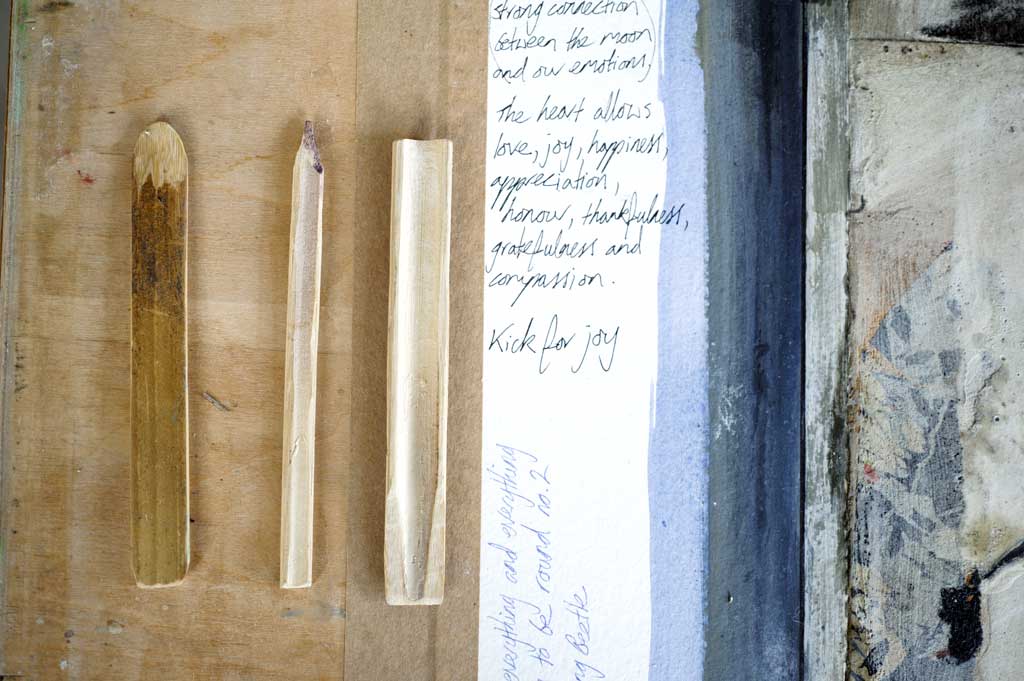 strong connection
between the moon
and our emotions,
the heart allows
love, joy, happiness,
appreciation,
honour, thankfulness,
gratefulness and
compassion.
Kick for joy
everything and everything
to be round no. 2